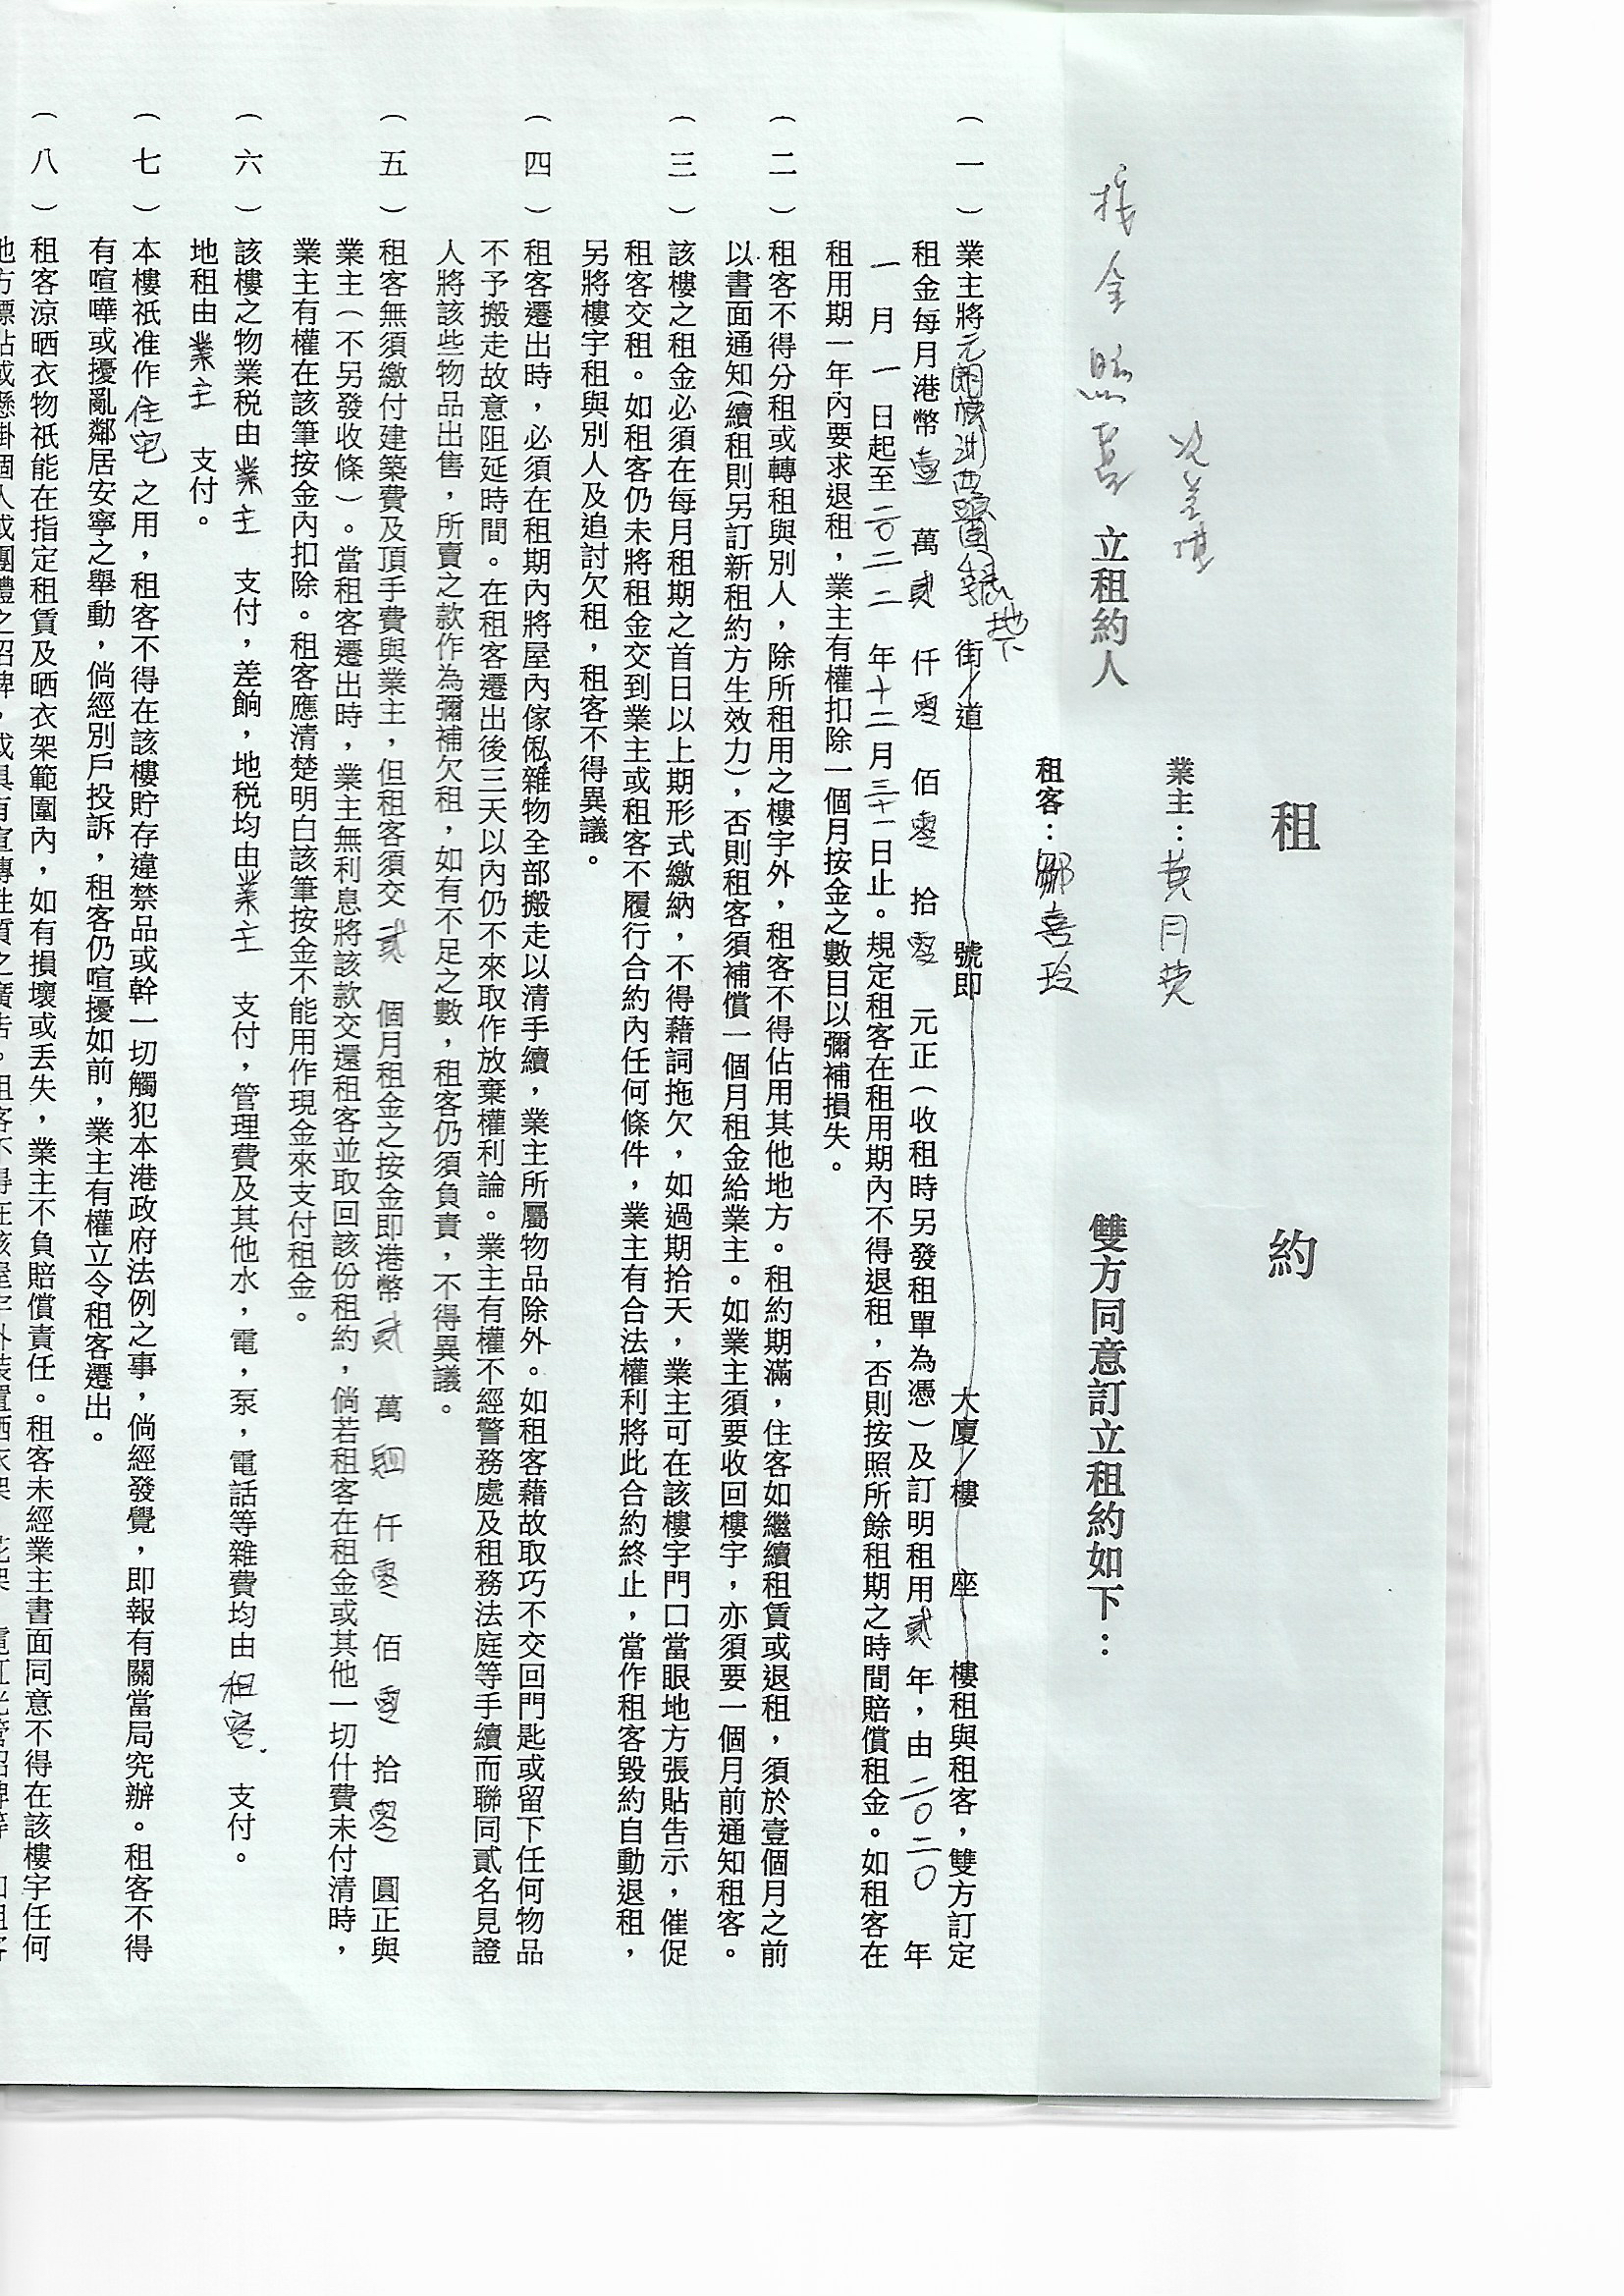 租約
業主：黃月
立租約人 雙方同意訂立租約如下：
租客：鄒喜玲
（一）業主將元朗 地下 街／道 號即 大廈／樓 座 樓租與租客，雙方訂定
租金每月港幣壹萬貳仟零佰零拾零元正（收租時另發租單為憑）及訂明租用貳年，由二０二０年
一月一日起至二０二二年十二月三十一日止。規定租客在租用期內不得退租，否則按照所餘租期之時間賠償租金。如租客在
租用期一年內要求退租，業主有權扣除一個月按金之數目以彌補損失。
（二）租客不得分租或轉租與別人，除所租用之樓宇外，租客不得佔用其他地方。租約期滿，住客如繼續租賃或退租，須於壹個月之前
以書面通知（續租則另訂新租約方生效力），否則租客須補償一個月租金給業主。如業主須要收回樓宇，亦須要一個月前通知租客。
（三）該樓之租金必須在每月租期之首日以上期形式繳納，不得藉詞拖欠，如過期拾天，業主可在該樓宇門口當眼地方張貼告示，催促
租客交租。如租客仍未將租金交到業主或租客不履行合約內任何條件，業主有合法權利將此合約終止，當作租客毀約自動退租，
另將樓宇租與別人及追討欠租，租客不得異議。
（四）租客遷出時，必須在租期內將屋內傢俬雜物全部搬走以清手續，業主所屬物品除外。如租客藉故取巧不交回門匙或留下任何物品
不予搬走故意阻延時間。在租客遷出後三天以內仍不來取作放棄權利論。業主有權不經警務處及租務法庭等手續而聯同貳名見證
人將該些物品出售，所賣之款作為彌補欠租，如有不足之數，租客仍須負責，不得異議。
（五）租客無須繳付建築費及頂手費與業主，但租客須交貳個月租金之按金即港幣貳萬肆仟零佰零拾零圓正與
業主（不另發收條）。當租客遷出時，業主無利息將該款交還租客並取回該份租約，倘若租客在租金或其他一切什費未付清時，
業主有權在該筆按金內扣除。租客應清楚明白該筆按金不能用作現金來支付租金。
（六）該樓之物業稅由業主支付，差餉，地稅均由業主支付，管理費及其他水，電，泵，電話等雜費均由租客支付。
地租由業主支付。
（七）本樓祇准作住宅之用，租客不得在該樓貯存違禁品或幹一切觸犯本港政府法例之事，倘經發覺，即報有關當局究辦。租客不得
有喧嘩或擾亂鄰居安寧之舉動，倘經別戶投訴，租客仍喧擾如前，業主有權立令租客遷出。
（八）租客涼晒衣物祇能在指定租賃及晒衣架範圍內，如有損壞或丟失，業主不負賠償責任。租客未經業主書面同意不得在該樓宇任何